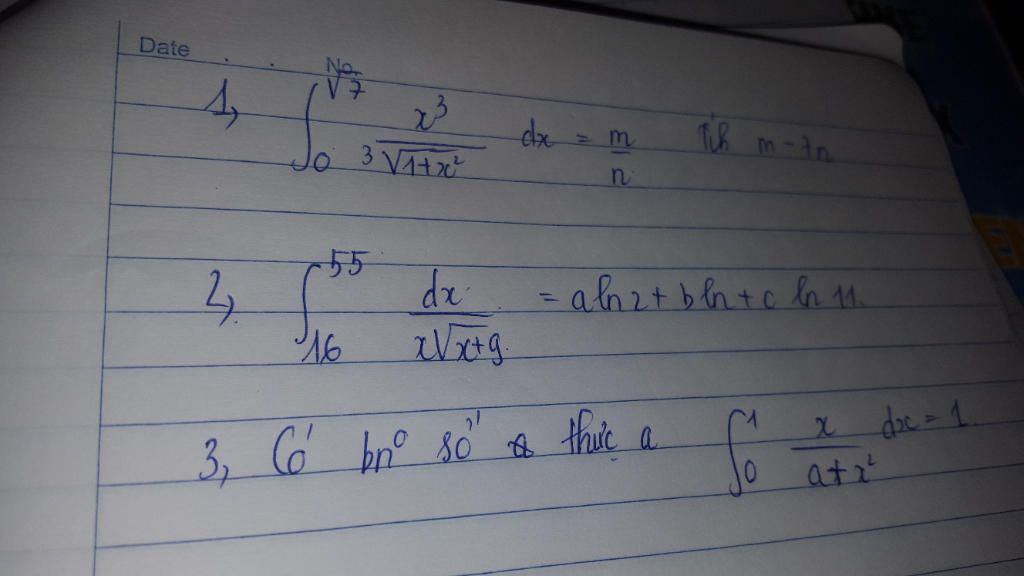 Date . . No.
1, ∫₀^√7 x³/∛(1+x²) dx = m/n Tính m - 7n
2, ∫₁₆^55 dx/(x√(x+9)) = a ln 2 + b ln + c ln 11.
3, Có bn° số thức a ∫₀^1 x/(a+x²) dx = 1